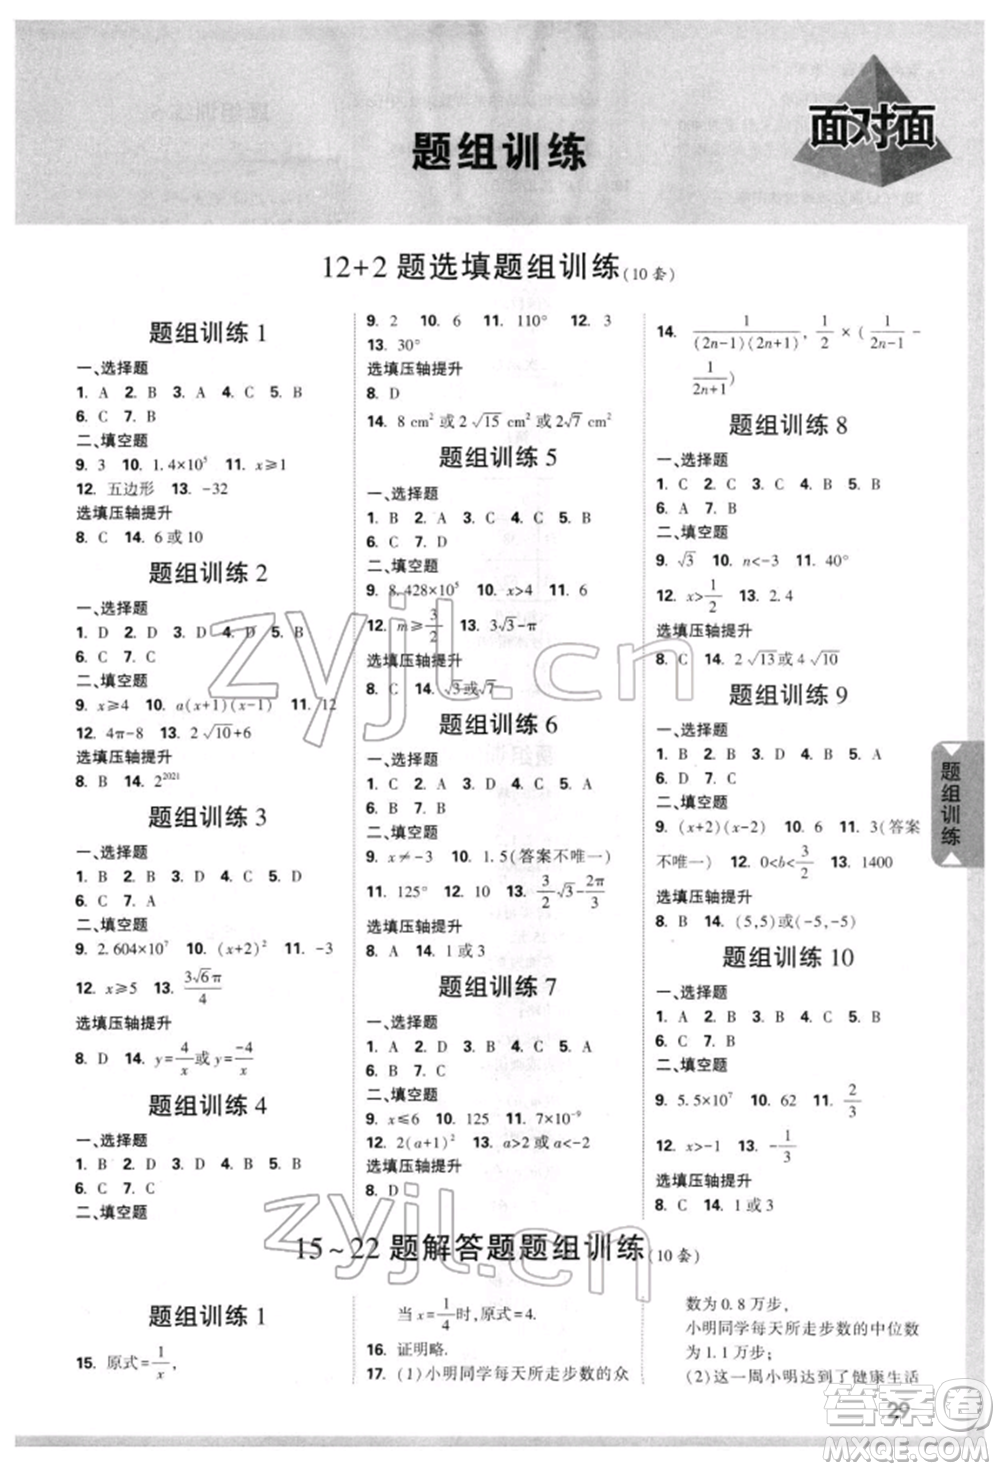 面对面
题组训练
12+2 题选填题组训练(10 套)
题组训练 1
一、选择题
1. A 2. B 3. A 4. C 5. B
6. C 7. B
二、填空题
9. 3 10. 1.4×10⁵ 11. x≥1
12. 五边形 13. -32
选填压轴提升
8. C 14. 6或10
题组训练 2
一、选择题
1. D 2. D 3. D 4. D 5. B
6. B 7. C
二、填空题
9. x≥4 10. a(x+1)(x-1) 11. 12
12. 4π-8 13. 2√10+6
选填压轴提升
8. B 14. 2²⁰²¹
题组训练 3
一、选择题
1. B 2. B 3. D 4. C 5. D
6. C 7. A
二、填空题
9. 2.604×10⁷ 10. (x+2)² 11. -3
12. x≥5 13. 3√6π/4
选填压轴提升
8. D 14. y=4/x或y=-4/x
题组训练 4
一、选择题
1. B 2. A 3. D 4. B 5. C
6. C 7. C
二、填空题
9. 2 10. 6 11. 110° 12. 3
13. 30°
选填压轴提升
8. D
14. 8 cm²或2√15 cm²或2√7 cm²
题组训练 5
一、选择题
1. B 2. A 3. C 4. C 5. B
6. C 7. B
二、填空题
9. 8.428×10⁵ 10. x>4 11. 6
12. m≥3/2 13. 3√3-π
选填压轴提升
8. C 14. √3或√7
题组训练 6
一、选择题
1. C 2. A 3. D 4. C 5. A
6. B 7. B
二、填空题
9. x≠-3 10. 1.5(答案不唯一)
11. 125° 12. 3 13. 3/2√3-2π/3
选填压轴提升
8. A 14. 1或3
题组训练 7
一、选择题
1. A 2. D 3. C 4. A 5. A
6. B 7. C
二、填空题
9. x≤6 10. 125 11. 7×10⁻⁹
12. 2(a+1)² 13. a>2或a<-2
选填压轴提升
8. D
14. 1/(2n-1)(2n+1), 1/2×(1/(2n-1)-
1/(2n+1))
题组训练 8
一、选择题
1. C 2. C 3. D 4. B 5. B
6. A 7. B
二、填空题
9. √3 10. n<-3 11. 40°
12. x>1/2 13. 2.4
选填压轴提升
8. C 14. 2√13或4√10
题组训练 9
一、选择题
1. B 2. B 3. C 4. B 5. A
6. D 7. C
二、填空题
9. (x+2)(x-2) 10. 6 11. 3(答案
不唯一) 12. 0<b<3/2 13. 1400
选填压轴提升
8. B 14. (5,5)或(-5,-5)
题组训练 10
一、选择题
1. A 2. B 3. B 4. C 5. B
6. C 7. D
二、填空题
9. 5.5×10⁷ 10. 62 11. 2/3
12. x>-1 13. -1/3
选填压轴提升
8. C 14. 1或3
题组训练
15~22 题解答题题组训练(10 套)
题组训练 1
15. 原式=1/x,
当x=1/4时,原式=4.
16. 证明略.
17. (1)小明同学每天所走步数的众
数为 0.8 万步,
小明同学每天所走步数的中位数
为 1.1 万步;
(2)这一周小明达到了健康生活
29
zyjl.cn
zyjl.cn
答案圈
MXQE.COM